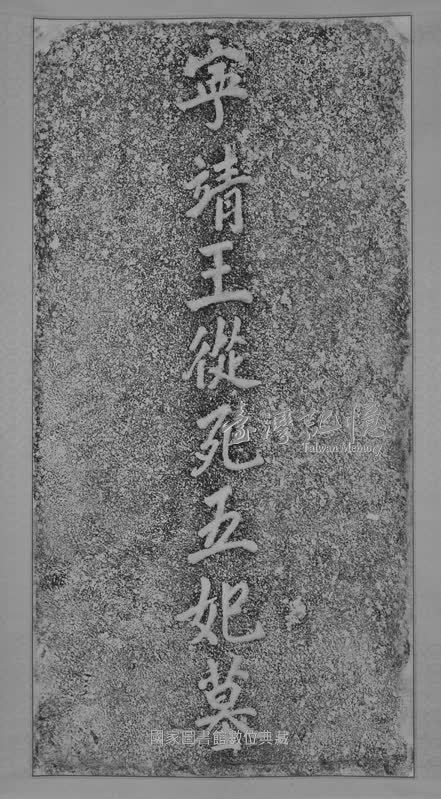 寧靖王從死五妃墓
臺灣記憶
Taiwan Memory
國家圖書館數位典藏